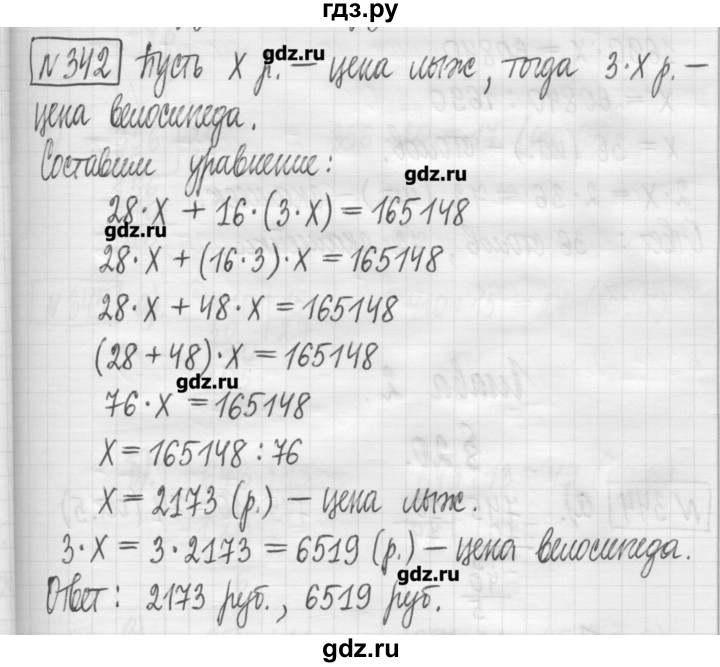 гдз.ру
gdz.ru
№342 Пусть x р. – цена лыж, тогда 3·x р. –
цена велосипеда.
Составим уравнение:
gdz.ru
28·x + 16·(3·x) = 165148
gdz.ru
28·x + (16·3)·x = 165148
28·x + 48·x = 165148
(28+48)·x = 165148
gdz.ru
76·x = 165148
x = 165148 : 76
x = 2173 (р.) – цена лыж.
3·x = 3·2173 = 6519 (р.) – цена велосипеда.
gdz.ru
Ответ: 2173 руб., 6519 руб.
gdz.ru